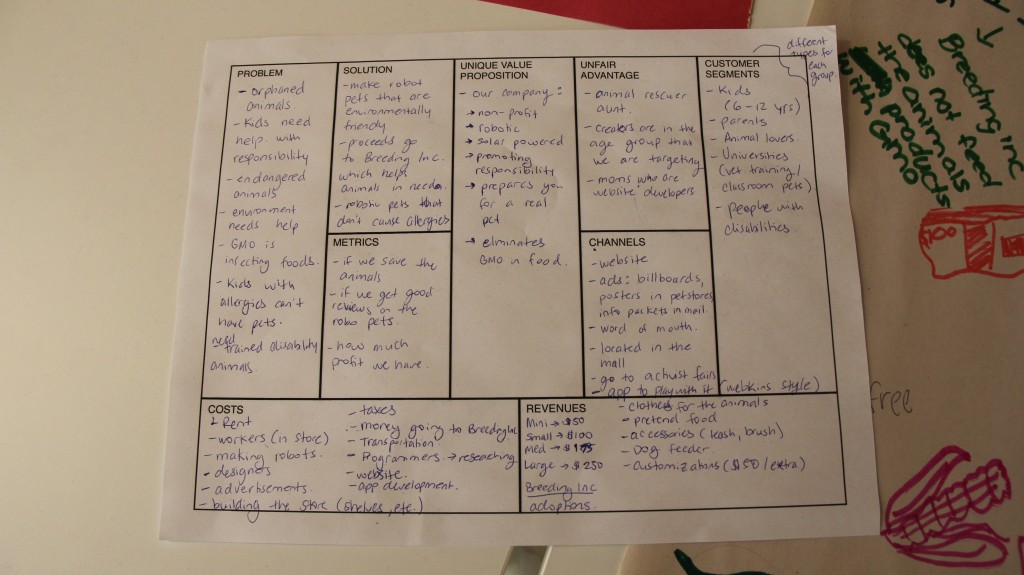 PROBLEM
- orphaned
animals.
- Kids need
help with
responsibility
- endangered
animals
- environment
needs help
- GMO is
infecting foods.
- Kids with
allergies can't
have pets.
need
- trained disability
animals.
SOLUTION
- make robot
pets that are
environmentally
friendly
- proceeds go
to Breeding Inc.
which helps
animals in need.
- robotic pets that
don't cause allergies
METRICS
- if we save the
animals
- if we get good
reviews on the
robo pets.
- how much
profit we have.
UNIQUE VALUE
PROPOSITION
- our company:
→ non-profit
→ robotic
→ solar powered
→ promoting
responsibility
→ prepares you
for a real
pet
→ eliminates
GMO in food.
UNFAIR
ADVANTAGE
- animal rescuer
aunt.
- creators are in the
age group that
we are targeting
- moms who are
website developers
CHANNELS
- website
- ads: billboards,
posters in petstores
info packets in mail.
- word of mouth.
- located in the
mall
- go to fairs
- app to play with it (webkins style)
CUSTOMER
SEGMENTS
different
types for
each
group.
- Kids
(6-12 yrs)
- parents
- Animal lovers.
- Universities
(vet training/
classroom pets)
- people with
disabilities.
COSTS
- Rent
- workers (in store)
- making robots.
- designers
- advertisements.
- building the store (shelves, etc.)
- taxes
- money going to Breeding Inc
- Transportation.
- Programmers → reseaching
- website.
- app development.
REVENUES
Mini → $50
Small → $100
Med → $175
Large → $250
Breeding Inc
adoptions.
- clothes for the animals
- pretend food
- accessories (leash, brush)
- Dog feeder.
- Customizations ($50/extra)
Breeding inc
does not feed
the animals
products
with GMO
$100
free